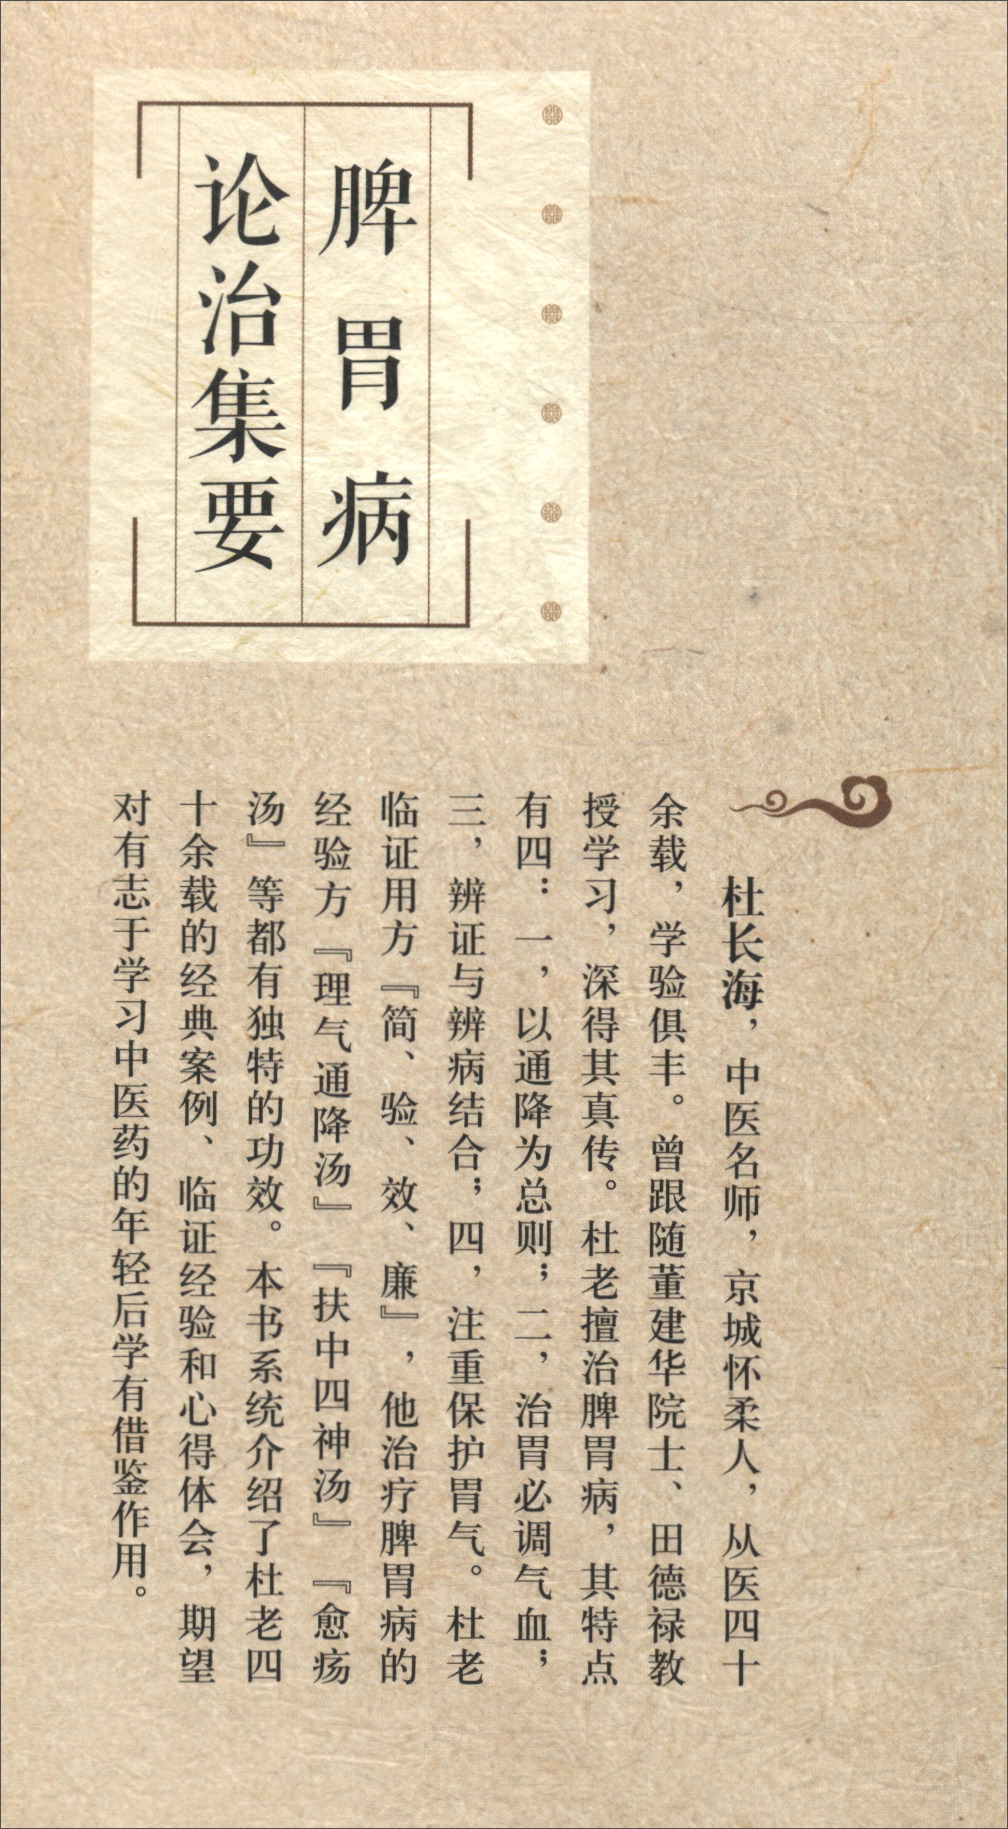 脾胃病
论治集要
杜长海，中医名师，京城怀柔人，从医四十
余载，学验俱丰。曾跟随董建华院士、田德禄教
授学习，深得其真传。杜老擅治脾胃病，其特点
有四：一，以通降为总则；二，治胃必调气血；
三，辨证与辨病结合；四，注重保护胃气。杜老
临证用方『简、验、效、廉』，他治疗脾胃病的
经验方『理气通降汤』『扶中四神汤』『愈疡
汤』等都有独特的功效。本书系统介绍了杜老四
十余载的经典案例、临证经验和心得体会，期望
对有志于学习中医药的年轻后学有借鉴作用。